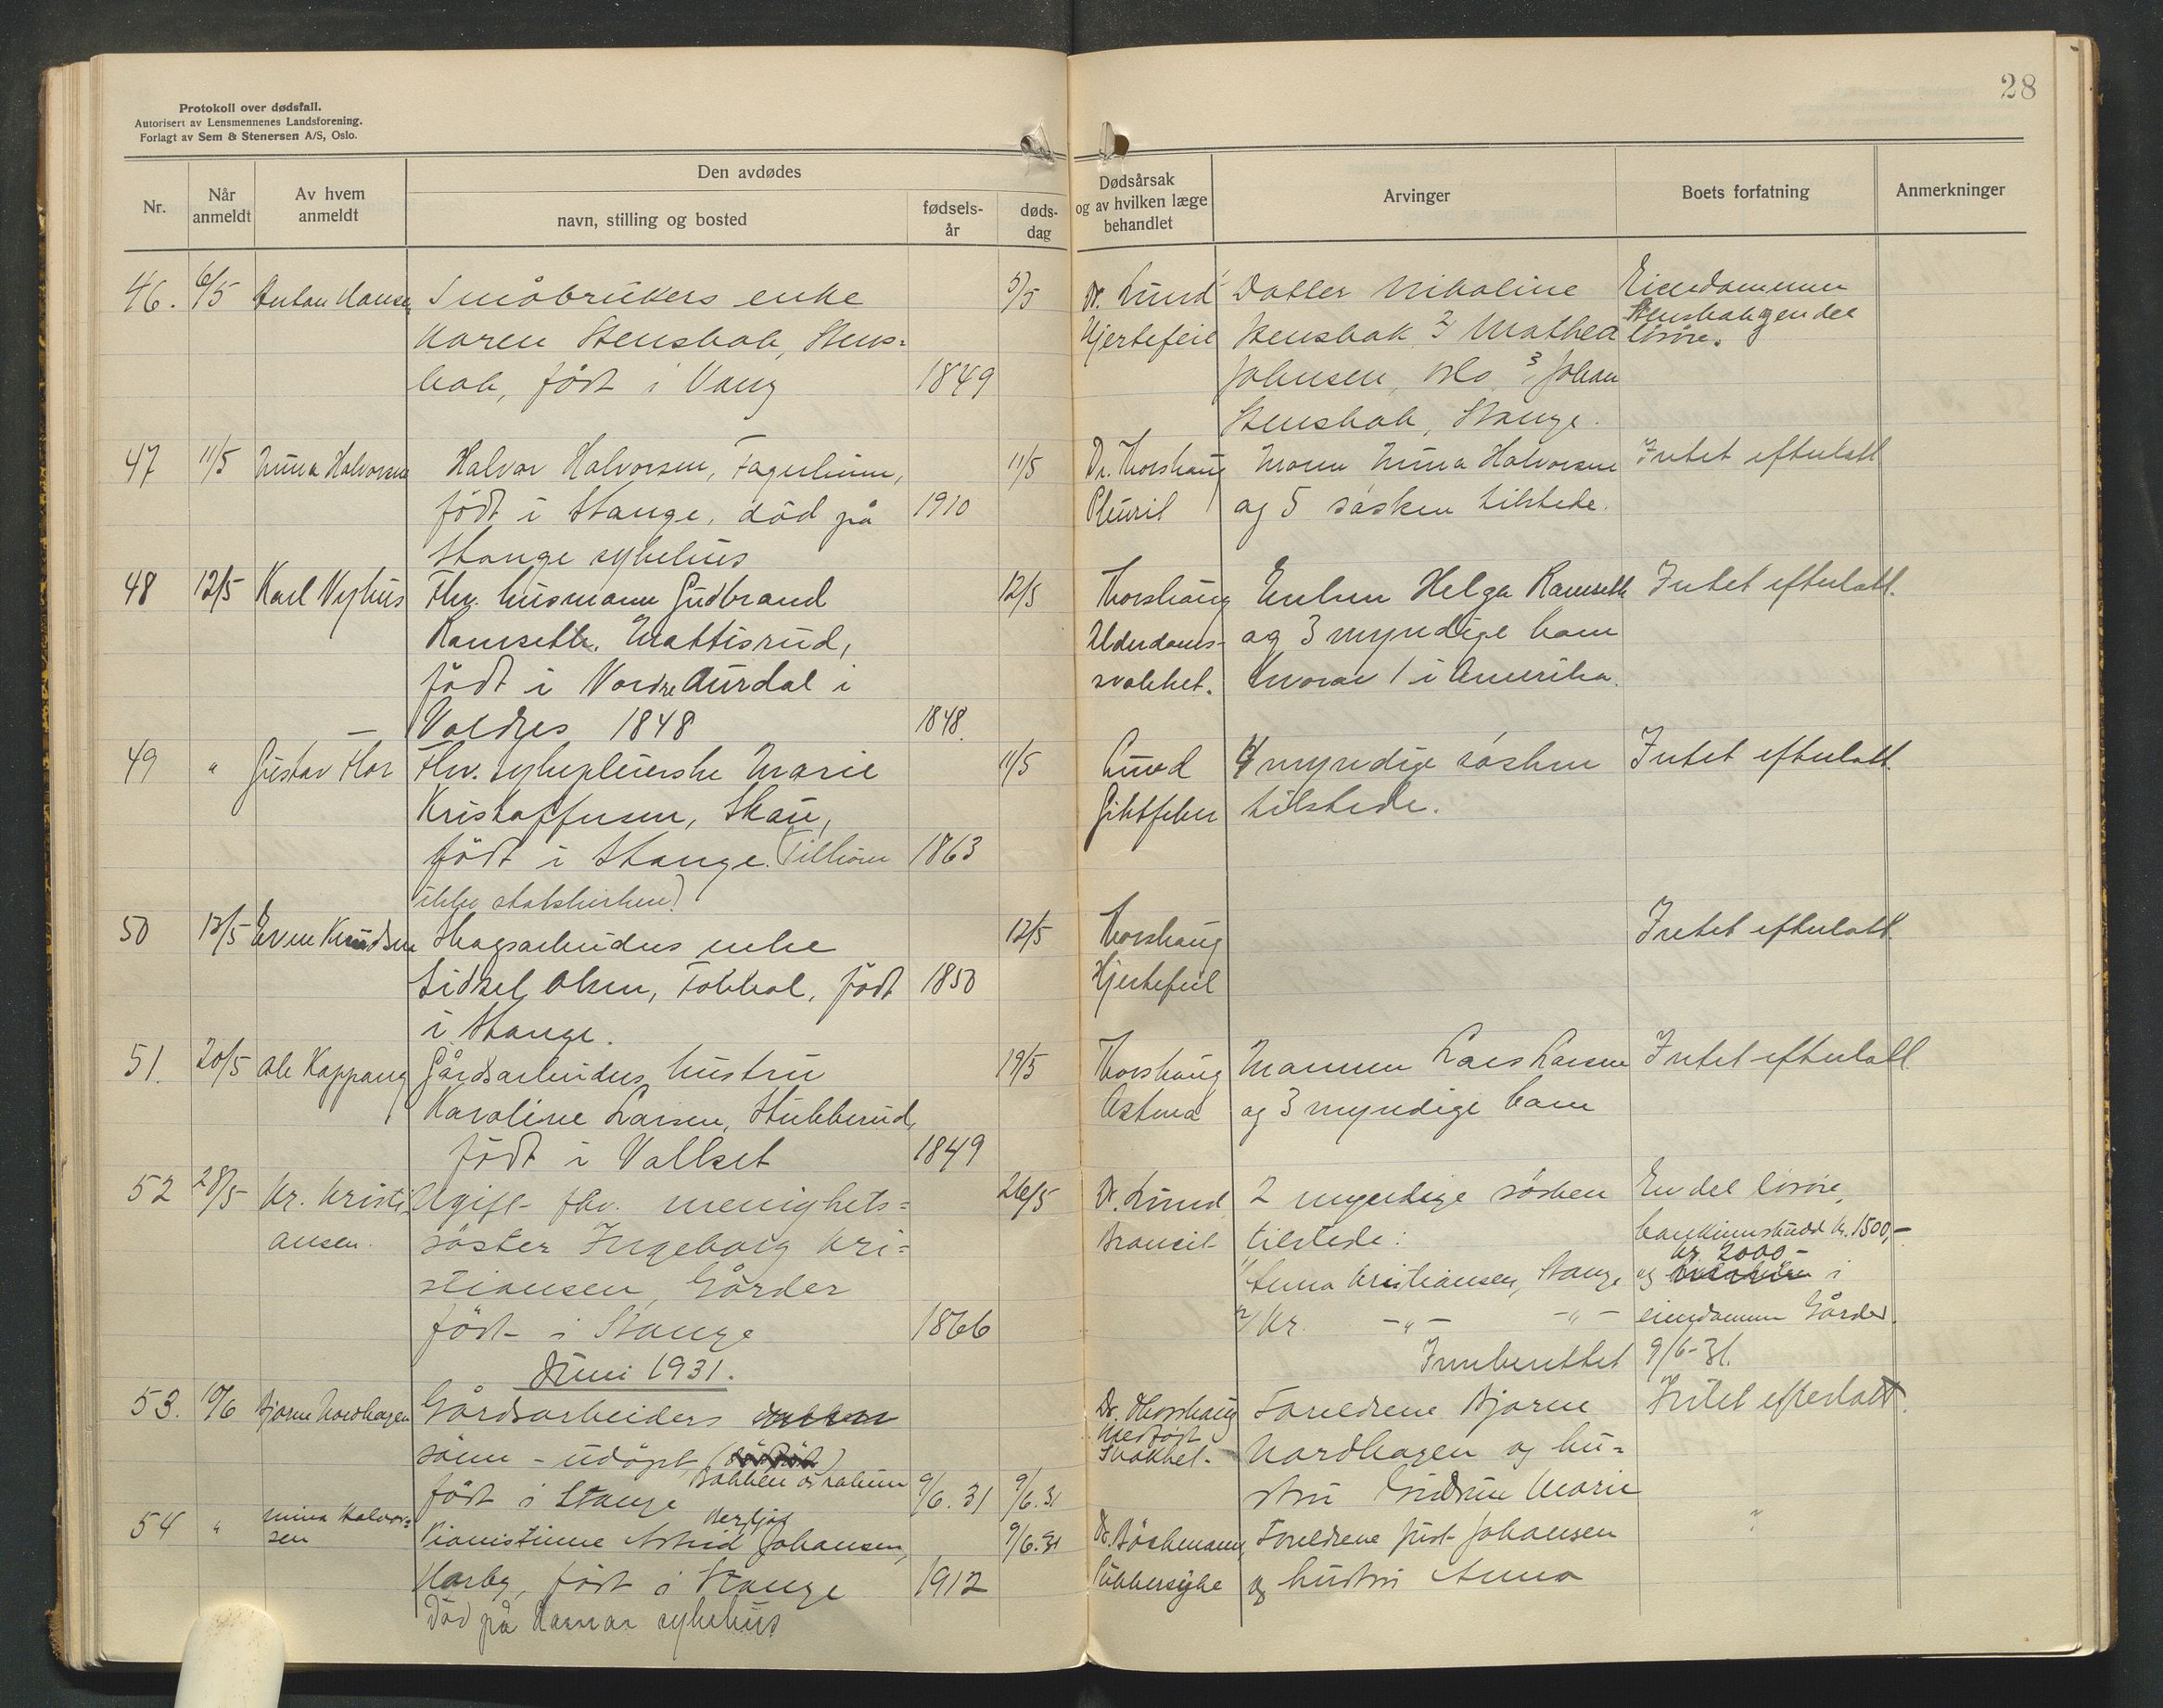 28
Protokoll over dødsfall.
Autorisert av Lensmennenes Landsforening.
Forlagt av Sem & Stenersen A/S, Oslo.
Nr.
Når anmeldt
Av hvem anmeldt
Den avdødes
navn, stilling og bosted
fødsels-år
døds-dag
Dødsårsak og av hvilken læge behandlet
Arvinger
Boets forfatning
Anmerkninger
46. 6/5 Anton Hansen Småbrukers enke 5/5 Dr. Lund Datter Nikoline Eiendommen
Karen Stensbak, Stens= Hjertefeil Stensbak 2/ Mathea Stensbak og en del
bak, født i Vang 1849 Johnsen, Oslo 3/ Johan løsøre.
Stensbak, Stange.
47 11/5 Mina Halvorsen Halvor Halvorsen, Fagerlund, 11/5 Dr. Thorshaug Moren Mina Halvorsen Intet efterlatt
født i Stange, død på 1910 Pleurit og 5 søsken tilstede.
Stange sykehus
48 12/5 Karl Nyhus Fhv. husmann Gudbrand 12/5 Thorshaug Enken Helga Ramseth Intet efterlatt.
Ramseth, Mattisrud, Alderdoms- og 3 myndige barn
født i Nordre Aurdal i svakhet. hvorav 1 i Amerika.
Valdres 1848 1848.
49 " Gustav Flor Fhv. sykepleierske Marie 11/5 Lund 4 myndige søsken Intet efterlatt.
Kristoffersen, Skau, Giktfeber tilstede.
født i Stange. (Tilhører 1863
ikke statskirken)
50 13/5 Even Knudsen Skogsarbeiders enke 12/5 Thorshaug Intet efterlatt.
Sidsel Olsen, født 1850 Hjertefeil
i Stange.
51. 20/5 Ole Kappang Gårdsarbeiders hustru 19/5 Thorshaug Mannen Lars Larsen Intet efterlatt
Karoline Larsen, Stubberud, Astma og 3 myndige barn
født i Vallset 1849
52 28/5 Kr. Kristi Ugift fhv. menighets= 26/5 Dr. Lund 2 myndige søsken En del løsøre,
ansen. søster Ingeborg Kri= Broncit tilstede: bankinnskudd kr. 1500,-
stiansen, Gårder 1/ Anna Kristiansen, Stange og kr. 2000,- i
født i Stange 1866 2/ Kr. -"- -"- eiendommen Gårder.
Innberettet 9/6-31.
Juni 1931.
53. 10/6 Bjarne Nordhagen Gårdsarbeiders Dr. Thorshaug Foreldrene Bjarne Intet efterlatt.
sønn - udøpt, Medfødt svakhet. Nordhagen og hu=
født i Stange 9/6.31 9/6.31 stru Gudrun Marie
54 " Mina Halvor= Pianistinne Astrid Johansen, 9/6.31 Foreldrene Just Johansen "
sen Harby, født i Stange 1912 Sukkersyke og hustru Anna
død på Hamar sykehus